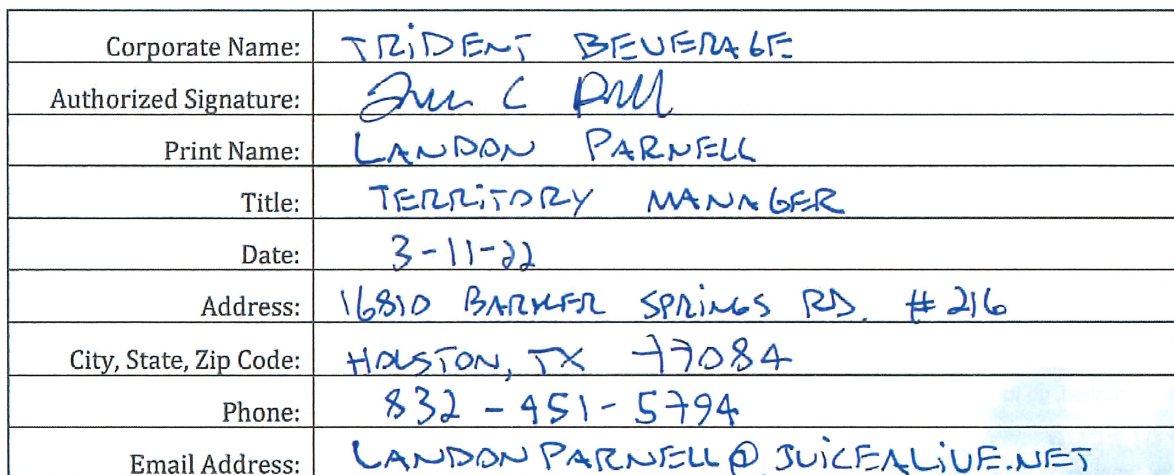 Corporate Name: TRIDENT BEVERAGE
Authorized Signature:
Print Name: LANDON PARNELL
Title: TERRITORY MANAGER
Date: 3-11-22
Address: 16810 BARKER SPRINGS RD. #216
City, State, Zip Code: HOUSTON, TX 77084
Phone: 832-451-5794
Email Address: LANDONPARNELL@JUICEALIVE.NET